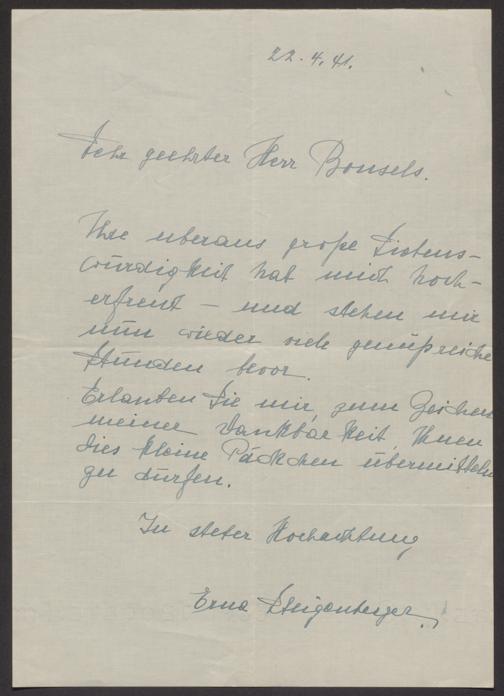 22.4.41.
Sehr geehrter Herr Bonsels.
Ihre uberaus große Liebens-
würdigkeit hat mich hoch-
erfreut – und stehen mir
nun wieder viele genußreiche
Stunden bevor.
Erlauben Sie mir, zum Zeichen
meiner Dankbarkeit, Ihnen
dies kleine Päckchen übermitteln
zu dürfen.
In steter Hochachtung
Erna Steigenberger.